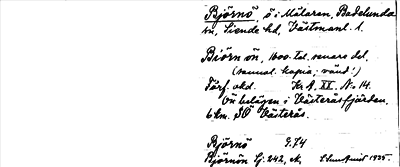 Björnö, ö i Mälaren, Badelunda
sn, Siende hd, Västmanl. l.
Biörn ön, 1600-tal. senare del.
(samml. kopia; vänd!)
Förf. okd. Kr A XX. N:o 14.
Ön belägen i Västeråsfjärden,
6 km. SO Västerås.
Björnö G.74
Björnön Gj. 242, ek,
1935.